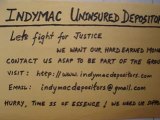 INDYMAC UNINSURED DEPOSITOR
Lets fight for JUSTICE
WE WANT OUR HARD EARNED MONE
CONTACT US ASAP TO BE PART OF THE GROU
VISIT: http://www.indymacdepositors.com
EMAIL: indymacdepositors@gmail.com
HURRY, TIME IS OF ESSENCE! WE NEED UR